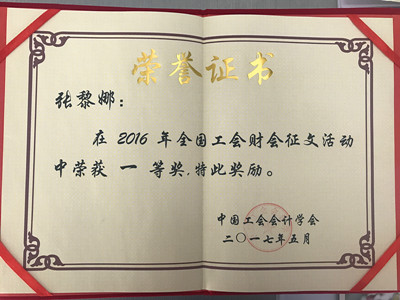 荣誉证书
张黎娜：
在 2016 年全国工会财会征文活动
中荣获 一 等奖，特此奖励。
中国工会会计学会
二〇一七年五月